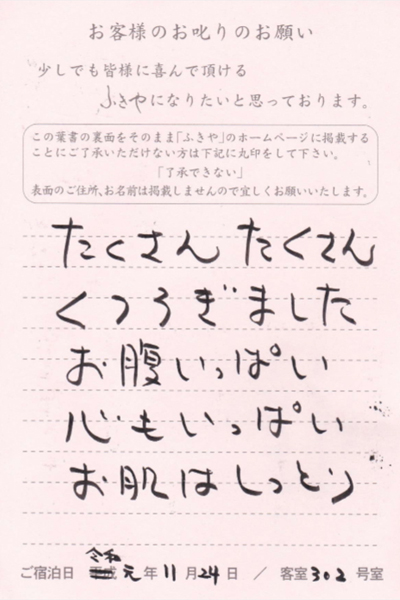 お客様のお叱りのお願い
少しでも皆様に喜んで頂ける
ふきやになりたいと思っております。
この葉書の裏面をそのまま「ふきや」のホームページに掲載する
ことにご了承いただけない方は下記に丸印をして下さい。
「了承できない」
表面のご住所、お名前は掲載しませんので宜しくお願いいたします。
たくさん たくさん
くつろぎました
お腹いっぱい
心もいっぱい
お肌はしっとり
令和
ご宿泊日 平成 元年 11月 24日 / 客室 302 号室